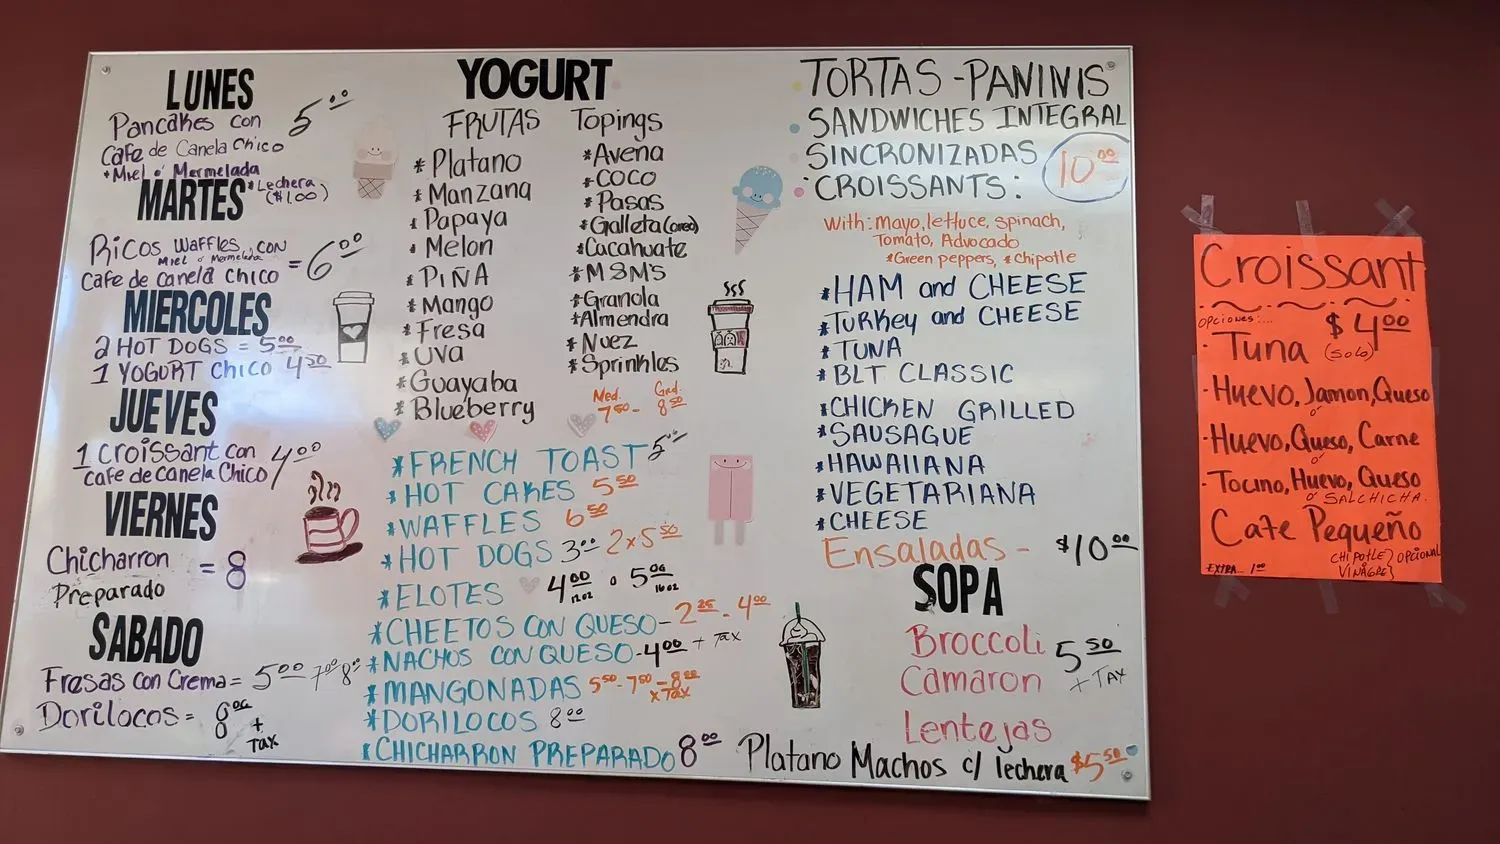 LUNES
Pancakes con 5.00
Cafe de Canela Chico
*Miel o Mermelada
*Lechera
($1.00)
MARTES
Ricos Waffles con
Miel o Mermelada
Cafe de canela chico = 6.00
MIERCOLES
2 HOT DOGS = 5.00
1 YOGURT CHICO 4.50
JUEVES
1 croissant con
cafe de canela Chico 4.00
VIERNES
Chicharron
Preparado = 8
SABADO
Fresas con Crema = 5.00 7.00 8.00
Dorilocos = 8.00
+
Tax
YOGURT
FRUTAS
* Platano
* Manzana
* Papaya
* Melon
* PIÑA
* Mango
* Fresa
* UVa
* Guayaba
* Blueberry
Topings
*Avena
*COCO
*Pasas
*Galleta (oreo)
*Cacahuate
*M&M's
*Granola
*Almendra
*Nuez
*Sprinkles
Med. Grd.
7.50 - 8.50
*FRENCH TOAST 5
*HOT CAKES 5.50
*WAFFLES 6.50
*HOT DOGS 3.00 2x5.50
*ELOTES 4.00 o 5.00
12oz 16oz
*CHEETOS CON QUESO - 2.25 - 4.00
*NACHOS CON QUESO - 4.00 + Tax
*MANGONADAS 5.50 - 7.50 - 8.00
x Tax
*DORILOCOS 8.00
*CHICHARRON PREPARADO 8.00
TORTAS - PANINIS
SANDWICHES INTEGRAL
SINCRONIZADAS
CROISSANTS: 10.00
With: Mayo, lettuce, spinach,
Tomato, Advocado
*Green peppers, *Chipotle
*HAM and CHEESE
*TURKey and CHEESE
*TUNA
*BLT CLASSIC
*CHICKEN GRILLED
*SAUSAGUE
*HAWAIIANA
*VEGETARIANA
*CHEESE
Ensaladas - $10.00
SOPA
Broccoli 5.50
Camaron + TAX
Lentejas
Platano Machos c/ lechera $5.50
Croissant
OPCIONES:...
$4.00
· Tuna (solo)
· Huevo, Jamon, Queso
o
· Huevo, Queso, Carne
o
· Tocino, Huevo, Queso
o SALCHICHA.
Cafe Pequeño
CHIPOTLE} OPCIONAL
VINAGRE}
EXTRA... 1.00